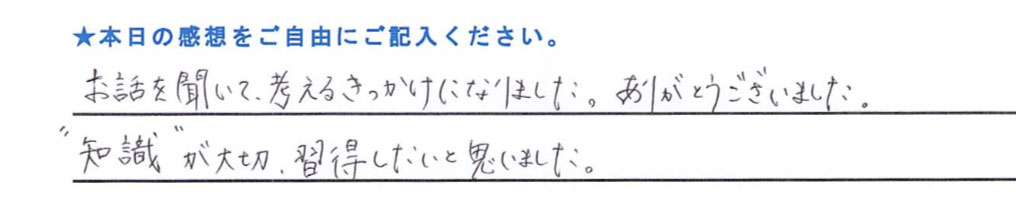 ★本日の感想をご自由にご記入ください。
お話を聞いて、考えるきっかけになりました。ありがとうございました。
"知識"が大切、習得したいと思いました。